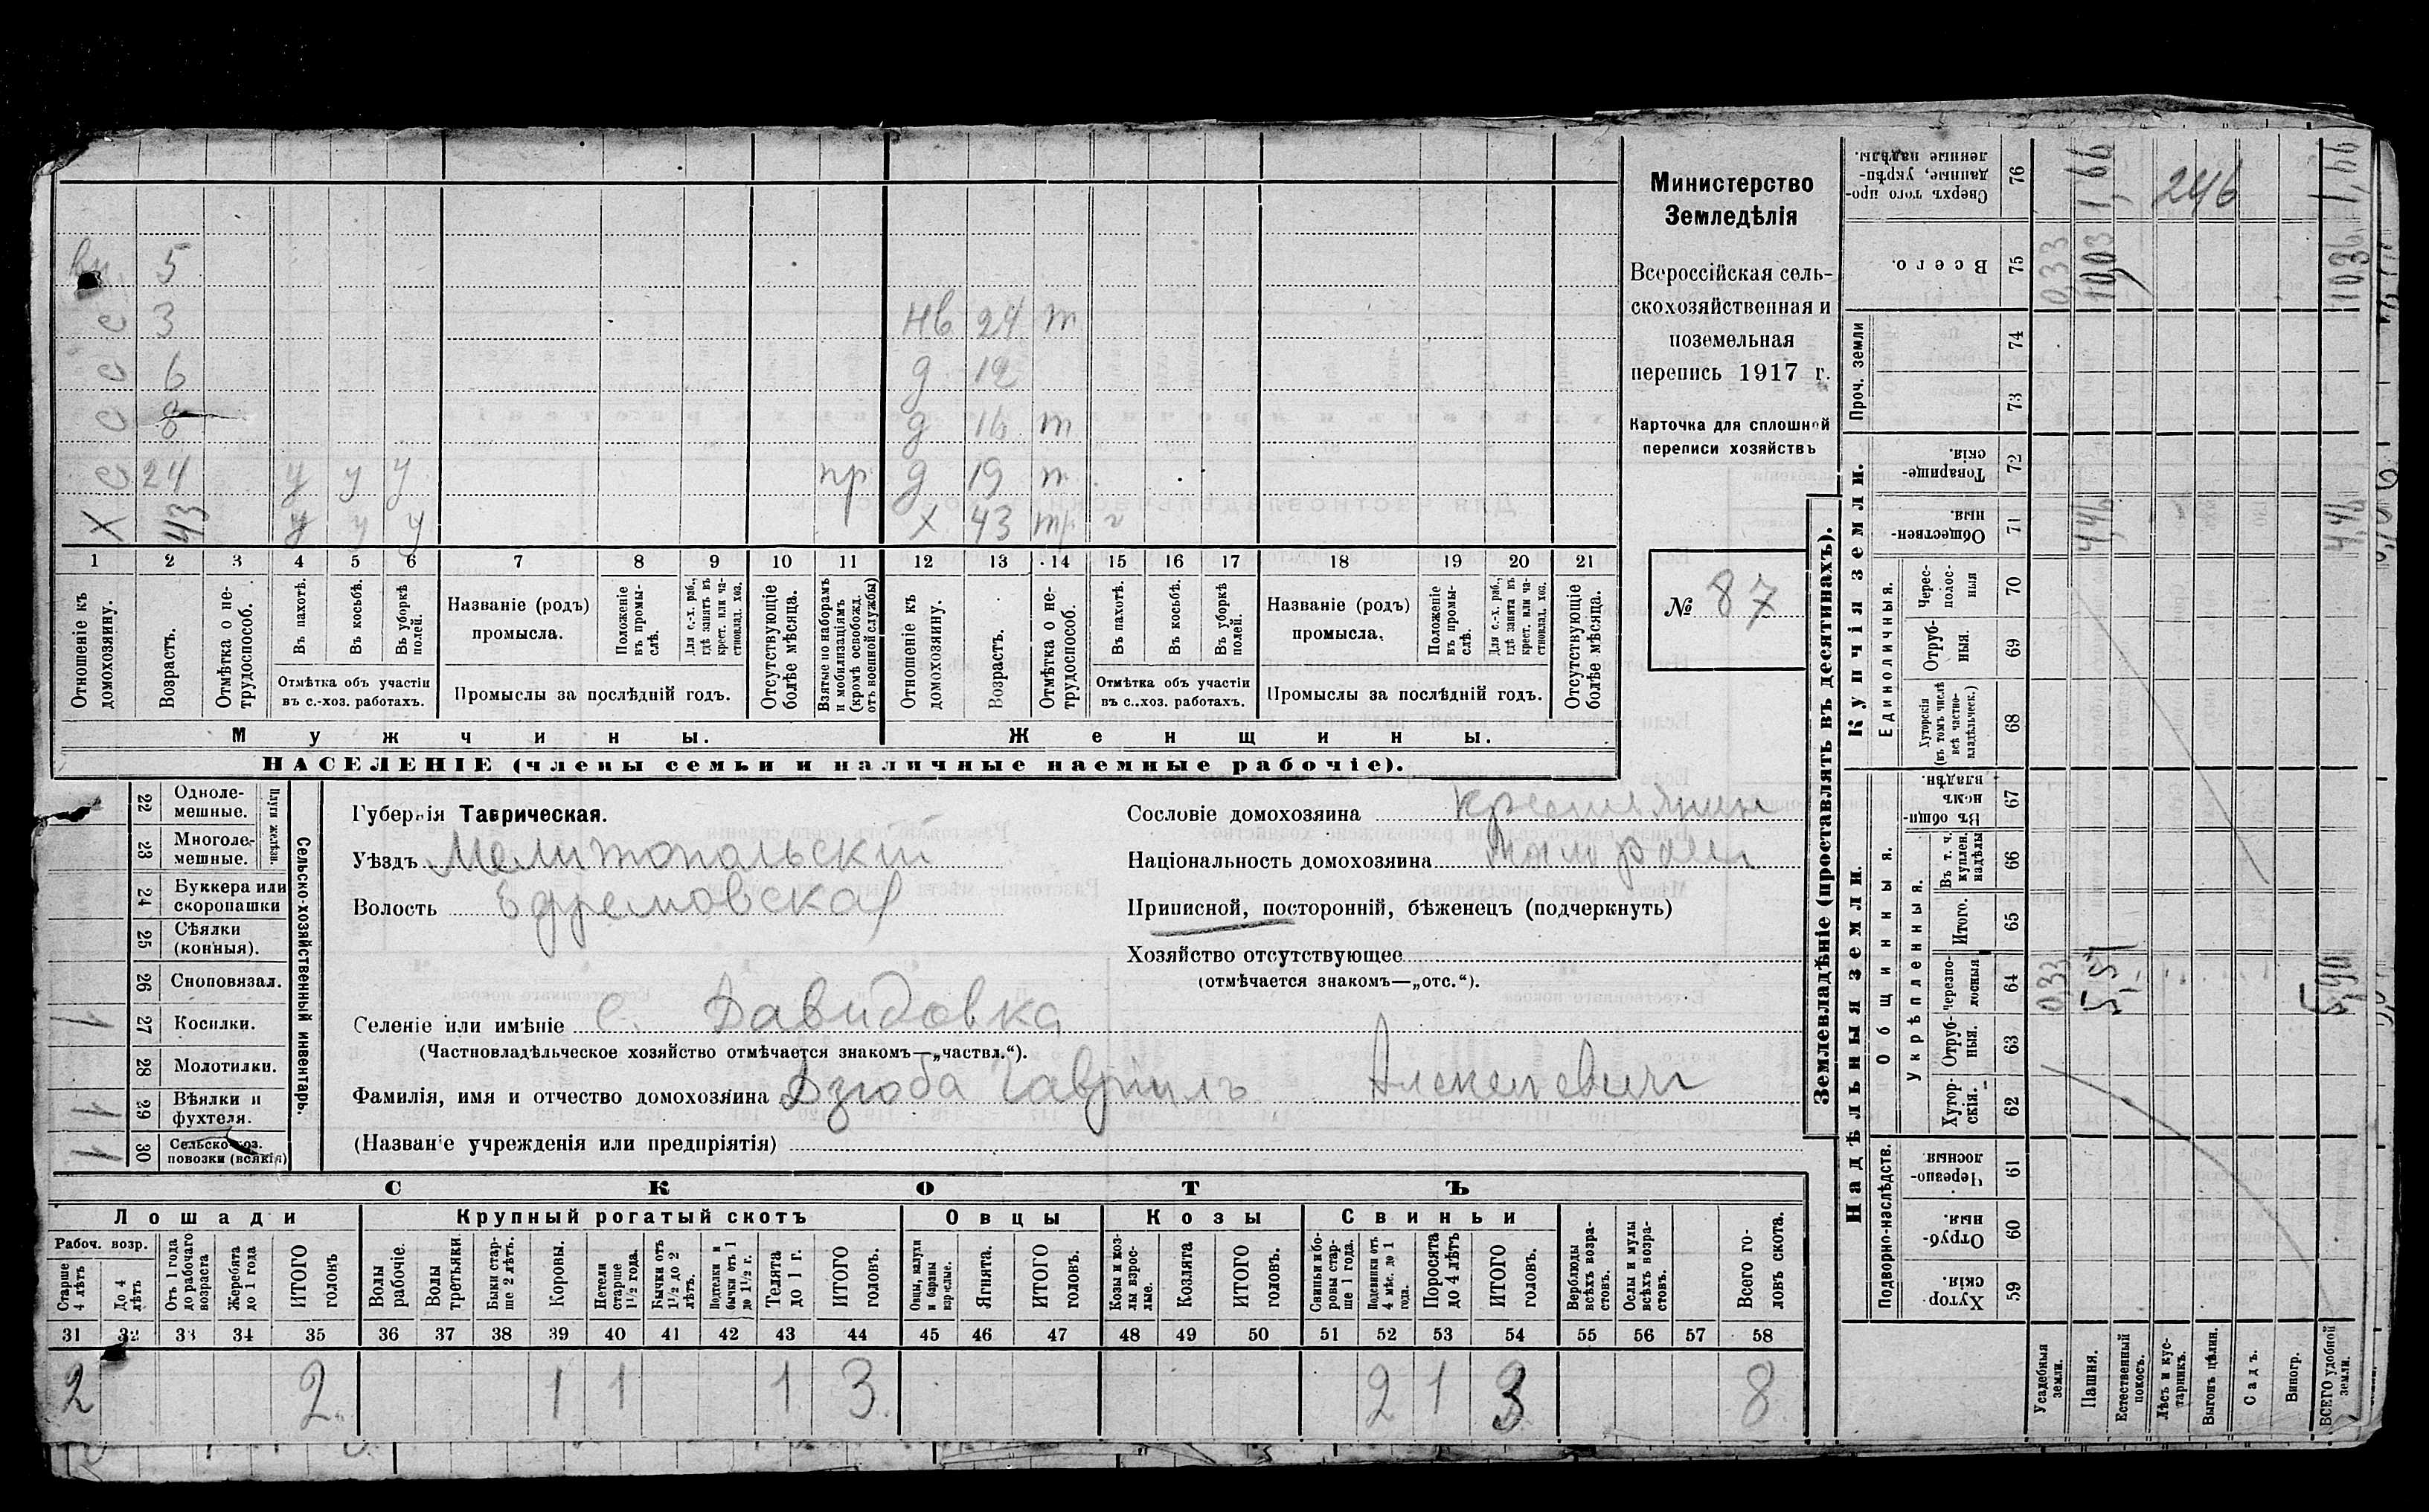 Министерство
Земледѣлія
Всероссійская сель-
скохозяйственная и
поземельная
перепись 1917 г.
Карточка для сплошной
переписи хозяйствъ
№ 87
5
с 3
с 6
с 8
с 24 у у у пр
Х 43 у у у
нв 24 т
д 12
д 16 т
д 19 т
х 43 тр
1 2 3 4 5 6 7 8 9 10 11 12 13 14 15 16 17 18 19 20 21
Отношеніе къ домохозяину.
Возрастъ.
Отмѣтка о не-трудоспособ.
Въ пахотѣ.
Въ косьбѣ.
Въ уборкѣ полей.
Отмѣтка объ участіи
въ с.-хоз. работахъ.
Названіе (родъ)
промысла.
Положеніе въ промы-слѣ.
Для с.-х. раб., гдѣ занятъ въ крест. или ча-стновлад. хоз.
Промыслы за послѣдній годъ.
Отсутствующіе болѣе мѣсяца.
Взятые по наборамъ и мобилизаціямъ (кромѣ освобожд. отъ военной службы)
Отношеніе къ домохозяину.
Возрастъ.
Отмѣтка о не-трудоспособ.
Въ пахотѣ.
Въ косьбѣ.
Въ уборкѣ полей.
Отмѣтка объ участіи
въ с.-хоз. работахъ.
Названіе (родъ)
промысла.
Положеніе въ промы-слѣ.
Для с.-х. раб., гдѣ занята въ крест. или ча-стновлад. хоз.
Промыслы за послѣдній годъ.
Отсутствующіе болѣе мѣсяца.
Мужчины.
Женщины.
НАСЕЛЕНІЕ (члены семьи и наличные наемные рабочіе).
Сельско-хозяйственный инвентарь.
Плуги желѣзн.
22 Одноле-мешные.
23 Многоле-мешные.
24 Буккера или скоропашки
25 Сѣялки (конныя).
26 Сноповязал.
27 Косилки. 1
28 Молотилки.
29 Вѣялки и фухтеля. 1
30 Сельско-хоз. повозки (всякія) 1
Губернія Таврическая.
Уѣздъ Мелитопольскій
Волость Ефремовская
Селеніе или имѣніе с. Давидовка
(Частновладѣльческое хозяйство отмѣчается знакомъ—„частвл.“).
Фамилія, имя и отчество домохозяина Дзюба Гавріилъ Алексеевич
(Названіе учрежденія или предпріятія)
Сословіе домохозяина крестьянин
Національность домохозяина Малоросс
Приписной, посторонній, бѣженецъ (подчеркнуть)
Хозяйство отсутствующее
(отмѣчается знакомъ—„отс.“).
СКОТЪ
Лошади
Крупный рогатый скотъ
Овцы
Козы
Свиньи
Рабоч. возр.
Старше 4 лѣтъ
До 4 лѣтъ
Отъ 1 года до рабочаго возраста
Жеребята до 1 года
ИТОГО головъ
Волы рабочіе.
Волы третьяки.
Быки стар-ше 2 лѣтъ.
Коровы.
Нетели старше 1½ года.
Бычки отъ 1½ до 2 лѣтъ.
Подтелки и бычки отъ 1 до 1½ г.
Телята до 1 г.
ИТОГО головъ.
Овцы, валухи и бараны взрослые.
Ягнята.
ИТОГО головъ.
Козы и коз-лы взрос-лые.
Козлята
ИТОГО головъ.
Свиньи и бо-ровы стар-ше 1 года.
Подсвинки отъ 4 мѣс. до 1 года.
Поросята до 4 лѣтъ
ИТОГО головъ.
Верблюды всѣхъ возра-стовъ.
Ослы и мулы всѣхъ возра-стовъ.
Всего го-ловъ скота.
31 32 33 34 35 36 37 38 39 40 41 42 43 44 45 46 47 48 49 50 51 52 53 54 55 56 57 58
2 2 1 1 1 3 2 1 3 8
Землевладѣніе (проставлять въ десятинахъ).
Надѣльныя земли.
Купчія земли.
Проч. земли
Подворно-наслѣдств.
Общинныя.
Укрѣпленныя.
Единоличныя.
59 Хутор-скія.
60 Отруб-ныя.
61 Черезпо-лосныя.
62 Хутор-скія.
63 Отруб-ныя.
64 Черезпо-лосныя
65 Итого.
66 Въ т. ч. куплен. надѣлы
67 Въ общи-номъ владѣн.
68 Хуторскія (въ томъ числѣ всѣ частно-владѣльческ.)
69 Отруб-ныя.
70 Черес-полос-ныя
71 Обществен-ныя.
72 Товарище-скія.
73
74
75 Всего.
76 Сверхъ того про-данные, укрѣп-ленные надѣлы.
Усадебныя земли. 0,33 0,33
Пашня. 5,57 4,46 10,03 1,66
Естественный покосъ.
Лѣсъ и кус-тарникъ. 246
Выгонъ цѣлин.
Садъ.
Виногр.
ВСЕГО удобной земли. 5,90 4,46 10,36 1,66